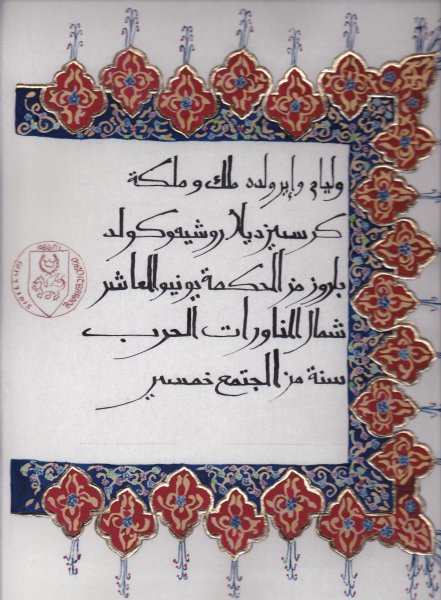 وليام وإيرولده ملك و ملكة
ديلا روشيفوكولد
بلروز من الحكمة يونيو العاشر
شمال المناورات الحرب
سنة من المجتمع خمسين